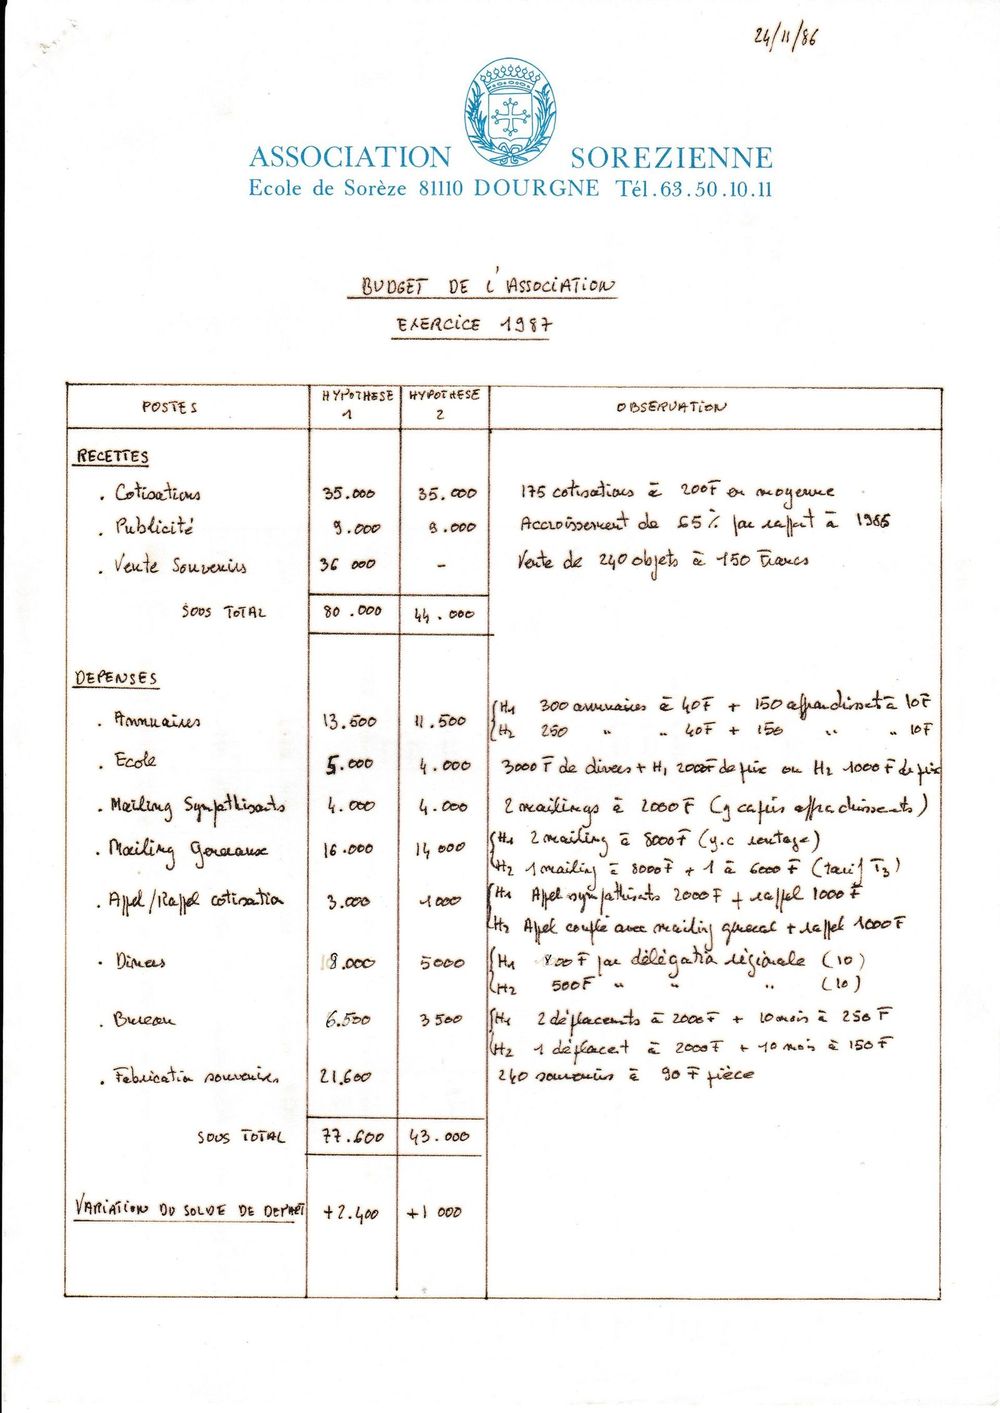 24/11/86
ASSOCIATION SOREZIENNE
Ecole de Sorèze 81110 DOURGNE Tél.63.50.10.11
BUDGET DE L'ASSOCIATION
EXERCICE 1987
POSTES HYPOTHESE 1 HYPOTHESE 2 OBSERVATION
RECETTES
. Cotisations 35.000 35.000 175 cotisations à 200F en moyenne
. Publicité 9.000 9.000 Accroissement de 65% par rapport à 1986
. Vente Souvenirs 36 000 - Vente de 240 objets à 150 Francs
SOUS TOTAL 80.000 44.000
DEPENSES
. Annuaires 13.500 11.500 H1 300 annuaires à 40F + 150 affranchisset à 10F
H2 250 " " 40F + 150 " " 10F
. Ecole 5.000 4.000 3000F de divers + H1 2000F de prix ou H2 1000F de prix
. Mailing Sympathisants 4.000 4.000 2 mailings à 2000F (y compris affranchissements)
. Mailing Generaux 16.000 14 000 H1 2 mailing à 8000F (y.c routage)
H2 1 mailing à 8000F + 1 à 6000F (tarif T3)
. Appel/Rappel cotisation 3.000 1000 H1 Appel sympathisants 2000F + rappel 1000F
H2 Appel couplé avec mailing general + rappel 1000F
. Divers 8.000 5000 H1 800F par délégation régionale (10)
H2 500F " " " (10)
. Bureau 6.500 3500 H1 2 déplacements à 2000F + 10 mois à 250F
H2 1 déplacet à 2000F + 10 mois à 150F
. Fabrication souvenirs 21.600 240 souvenirs à 90F pièce
SOUS TOTAL 77.600 43.000
VARIATION DU SOLDE DE DEPART +2.400 +1 000